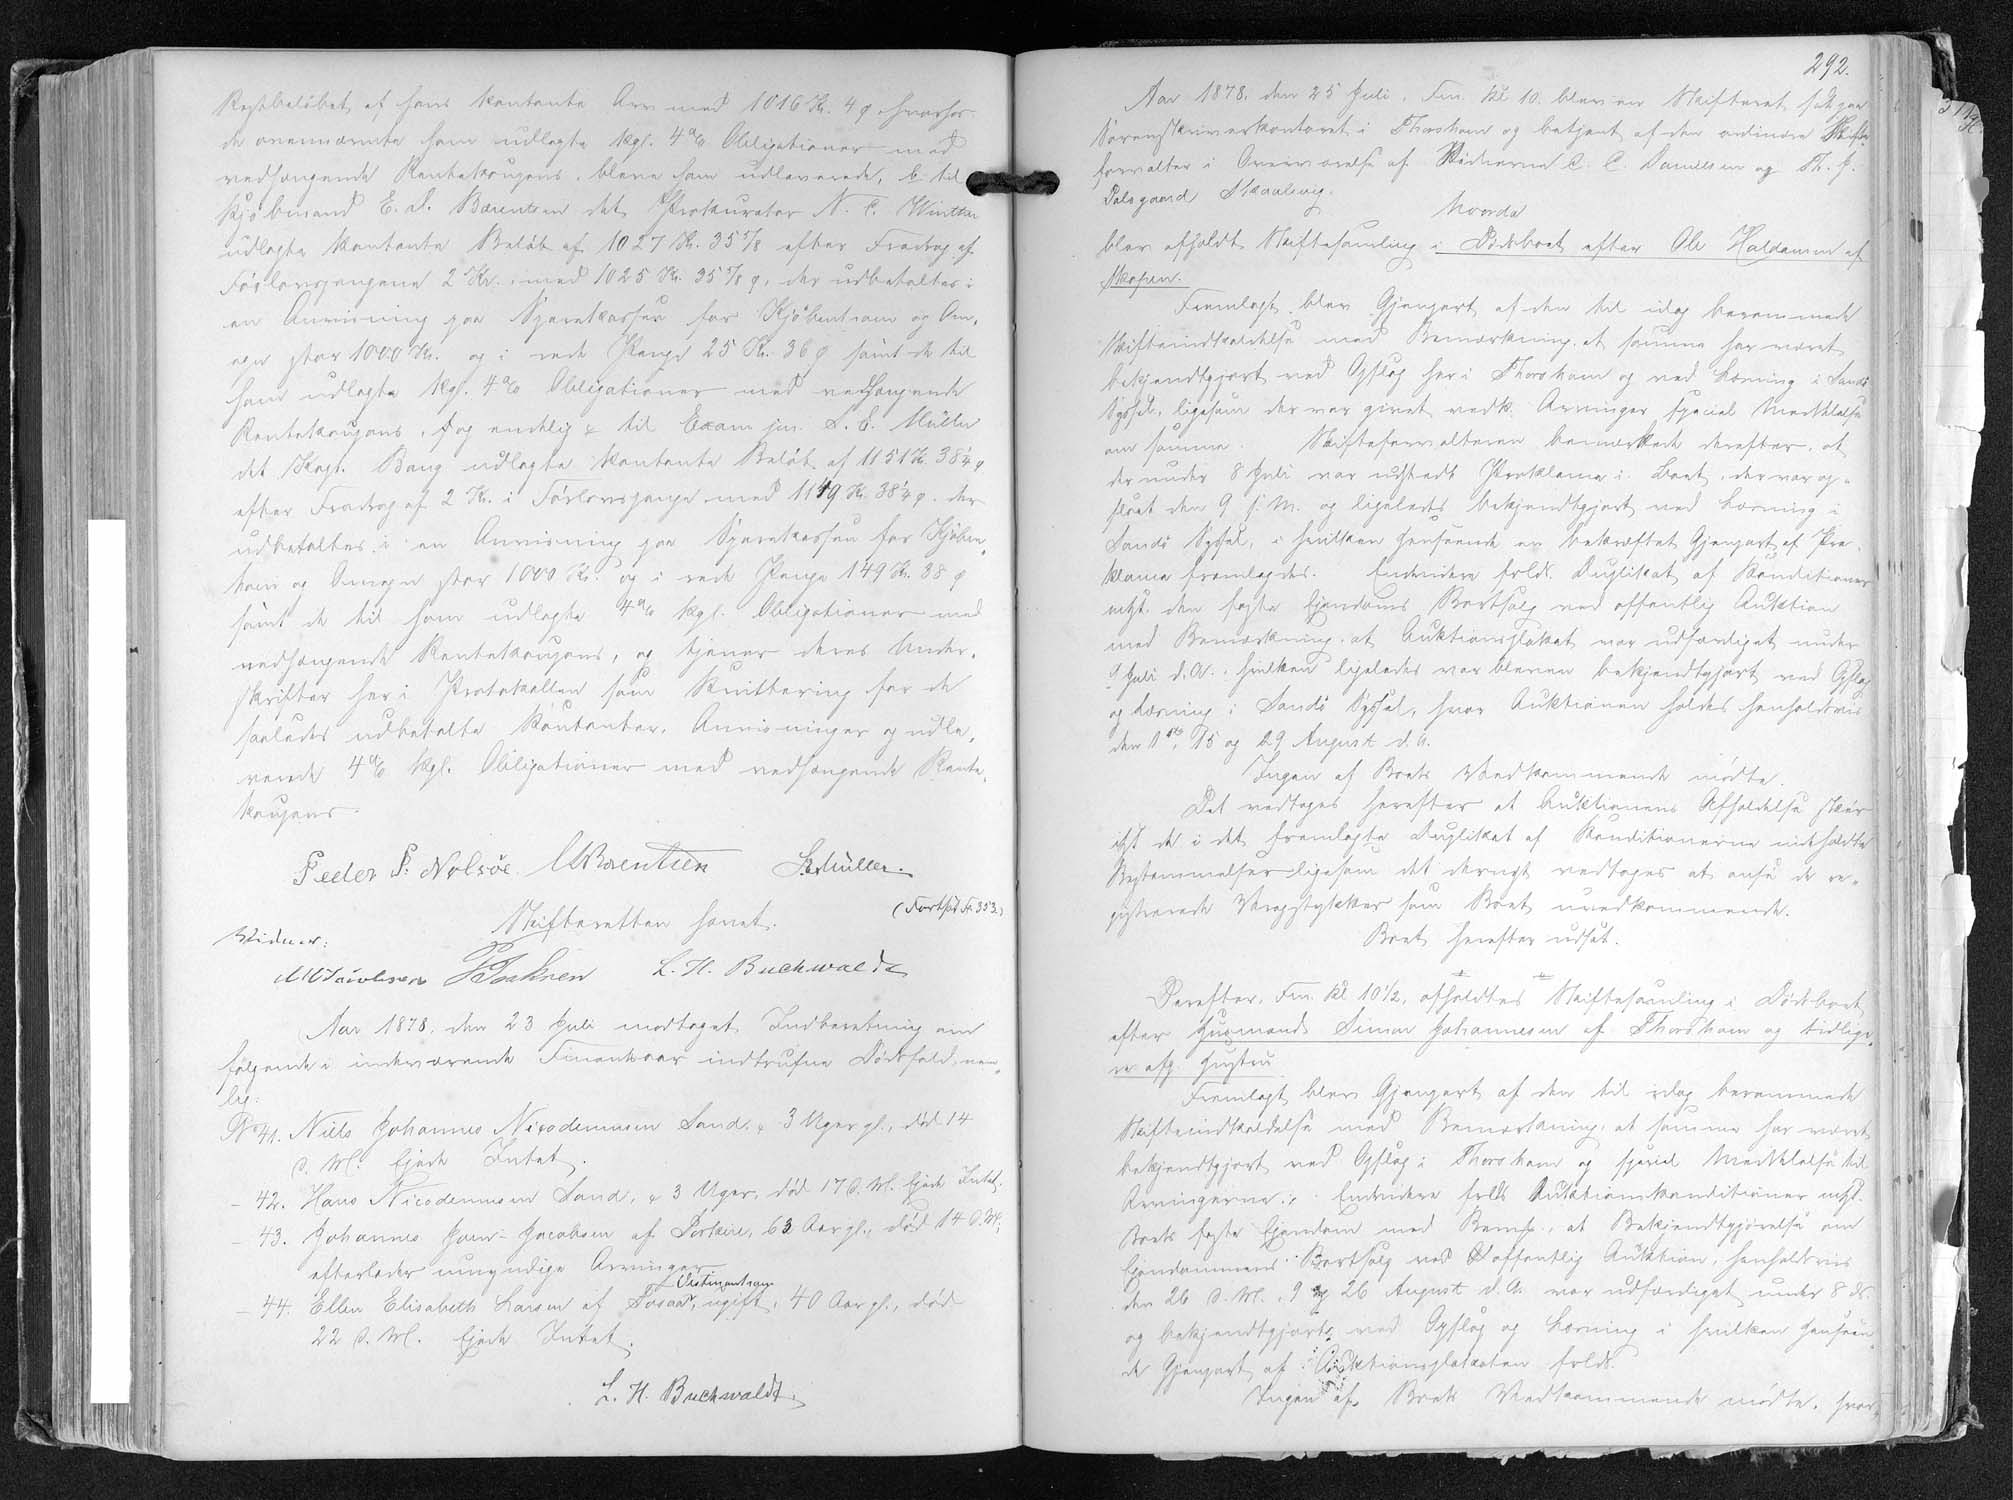 Restbeløbet af hans kontante Arv med 1016 Kr. 4 Ø hvorhos
de ovennævnte ham udlagte kgl. 4% Obligationer med
vedhængende Rentekoupons, bleve ham udleverede, b til
Kjøbmand E. A. Bærentsen det Prokurator N. C. Winther
udlagte kontante Beløb af 1027 Kr. 35 7/8 efter Fradrag af
Førlovspengene 2 Kr., med 1025 Kr. 35 7/8 Ø, der udbetaltes i
en Anvisning paa Sparekassen for Kjøbenhavn og Om-
egn stor 1000 Kr. og i rede Penge 25 Kr. 36 Ø samt de til
ham udlagte kgl. 4% Obligationer med vedhængende
Rentekoupons, og endelig c til Exam. jur. L. E. Müller
det Kapt. Bang udlagte kontante Beløb af 1151 Kr. 38 1/4 Ø
efter Fradrag af 2 Kr. i Førlovspenge med 1149 Kr. 38 1/4 Ø, der
udbetaltes i en Anvisning paa Sparekassen for Kjøben-
havn og Omegn stor 1000 Kr. og i rede Penge 149 Kr. 38 Ø
samt de til ham udlagte 4% kgl. Obligationer med
vedhængende Rentekoupons, og tjener deres Under-
skrifter her i Protokollen som Kvittering for de
saaledes udbetalte Kontanter, Anvisninger og udle-
verede 4% kgl. Obligationer med vedhængende Rente-
koupons.
Peder P. Nolsøe. EABærentsen LEMüller.
(Forts. Fr. 353.)
Skifteretten hævet.
Vidner:
MWJacobsen L. H. Buchwaldt
Aar 1878, den 23 Juli modtaget Indberetning om
følgende i indeværende Finantsaar indtrufne Dødsfald, nem-
lig:
No 41. Niels Johannes Nicodemusen Sand, c 3 Uger gl., død 14
d. M. Ejede Intet.
- 42. Hans Nicodemusen Sand, c 3 Uger, død 17 d. M. Ejede Intet.
- 43. Johannes Joen-Jacobsen af Porkere, 63 Aar gl., død 14 d. M.,
efterlader umyndige Arvinger.
Vestmanhavn
- 44. Ellen Elisabeth Larsen af ugift, 40 Aar gl., død
22 d. M. Ejede Intet.
L. H. Buchwaldt.
292.
Aar 1878, den 25 Juli, Fm. Kl 10. blev en Skifteret sat paa
Sorenskriverkontoret i Thorshavn og betjent af den ordinære Skifte-
forvalter i Overværelse af Vidnerne C. C. Danielsen og Th. J.
Dalsgaard Skaalevig.
Hvorda
blev afholdt Skiftesamling i Dødsboet efter Ole Haldansen af
Skopen.
Fremlagt blev Gjenpart af den til idag berammede
Skifteindkaldelse med Bemærkning, at samme har været
bekjendtgjort ved Opslag her i Thorshavn og ved Læsning i Sandø
Syssel, ligesom der var givet vedk. Arvinger special Meddelelse
om samme. Skifteforvalteren bemærkede derefter, at
der under 8 Juli var udstedt Proklama i Boet, der var op-
slaaet den 9 s. M. og ligeledes bekjendtgjort ved Læsning i
Sandø Syssel, i hvilken Henseende en bekræftet Gjenpart af Pro-
klama fremlagdes. Endvidere frlds. Duplikat af Konditioner
mht. den faste Ejendoms Bortsalg ved offentlig Auktion
med Bemærkning, at Auktionsplakat var udfærdiget under
9 Juli d. A., hvilken ligeledes var bleven bekjendtgjort ved Opslag
og Læsning i Sandø Syssel, hvor Auktionen holdes henholdsvis
den 1ste, 15 og 29 August d. A.
Ingen af Boets Vedkommende mødte.
Det vedtoges herefter at Auktionens Afholdelse sker
ifølge de i det fremlagte Duplikat af Konditionerne indeholdte
Bestemmelser ligesom det dernæst vedtoges at anse de re-
gistreredeVærgstykker som Boet uvedkommende.
Boet herefter udsat.
Derefter, Fm. Kl 10 1/2, afholdtes Skiftesamling i Dødsboet
efter Huusmand Simon Johannesen af Thorshavn og tidlige-
re afg. Hustru.
Fremlagt blev Gjenpart af den til idag berammede
Skifteindkaldelse med Bemærkning, at samme har været
bekjendtgjort ved Opslag i Thorshavn og special Meddelelse til
Arvingerne. Endvidere frlds Auktionskonditioner mht.
Boets faste Ejendom med Bemk., at Bekjendtgjørelse om
Ejendommens Bortsalg ved offentlig Auktion, henholdsvis
den 26 d. M., 9 og 26 August d. A. var udfærdiget under 8 ds.
og bekjendtgjort ved Opslag og Læsning i hvilken Henseen-
de Gjenpart af Auktionsplakaten frlds.
Ingen af Boets Vedkommende mødte, hvor-